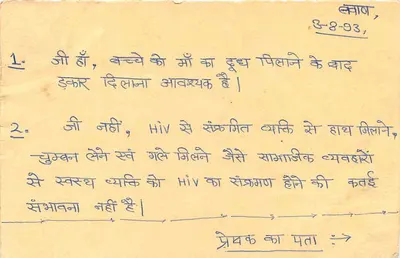 क्वाष,
3-8-93,
1. जी हाँ, बच्चे को माँ का दूध पिलाने के बाद
डकार दिलाना आवश्यक है।
2. जी नहीं, HIV से संक्रमित व्यक्ति से हाथ मिलाने,
चुम्बन लेने एवं गले मिलने जैसे सामाजिक व्यवहारों
से स्वस्थ व्यक्ति को HIV का संक्रमण होने की कतई
संभावना नहीं है।
प्रेषक का पता :→